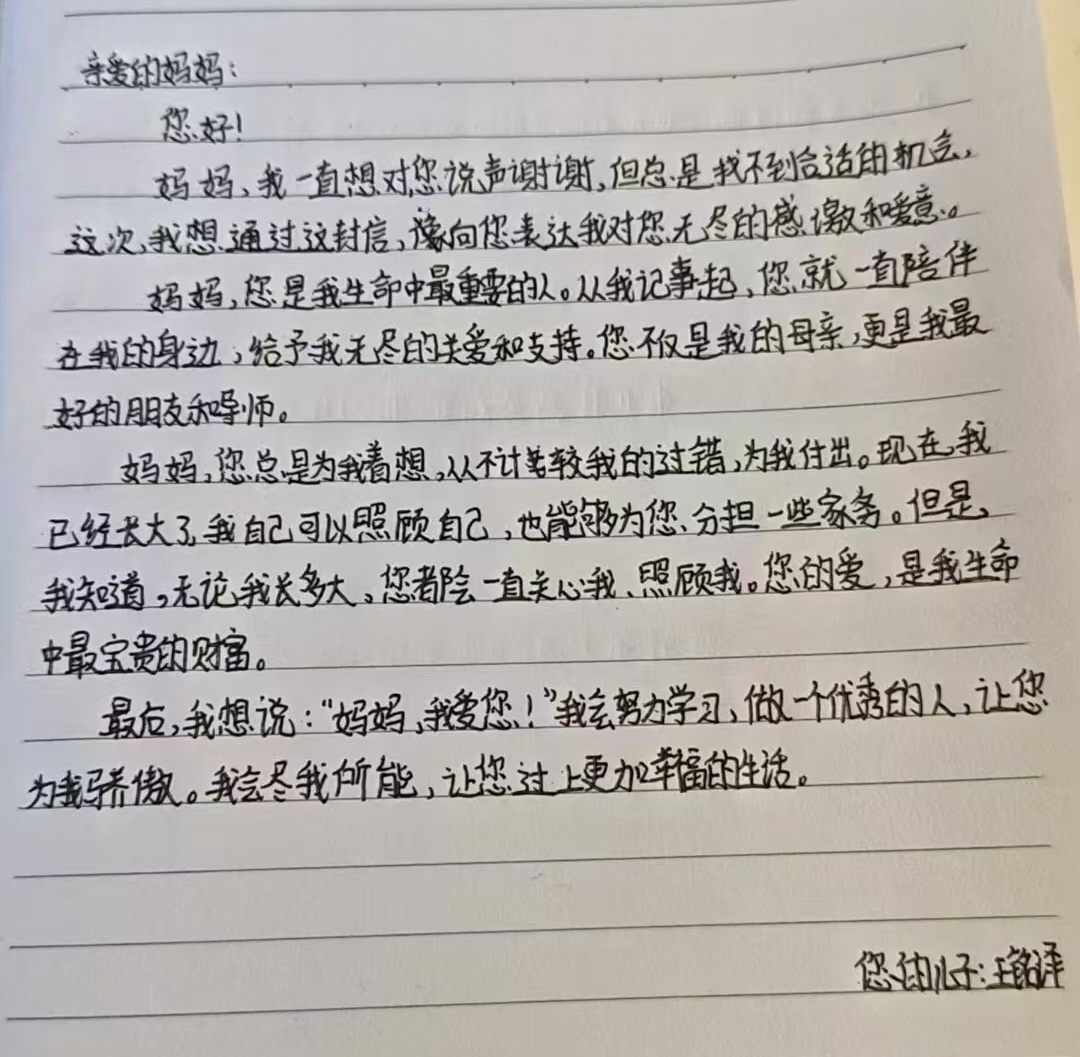 亲爱的妈妈:
您好!
妈妈,我一直想对您说声谢谢,但总是找不到合适的机会,
这次,我想通过这封信,向您表达我对您无尽的感激和爱意。
妈妈,您是我生命中最重要的人。从我记事起,您就一直陪伴
在我的身边,给予我无尽的关爱和支持。您不仅是我的母亲,更是我最
好的朋友和导师。
妈妈,您总是为我着想,从不计较我的过错,为我付出。现在,我
已经长大了,我自己可以照顾自己,也能够为您分担一些家务。但是,
我知道,无论我长多大,您都会一直关心我、照顾我。您的爱,是我生命
中最宝贵的财富。
最后,我想说:“妈妈,我爱您!”我会努力学习,做一个优秀的人,让您
为我骄傲。我会尽我所能,让您过上更加幸福的生活。
您的儿子:王铭译